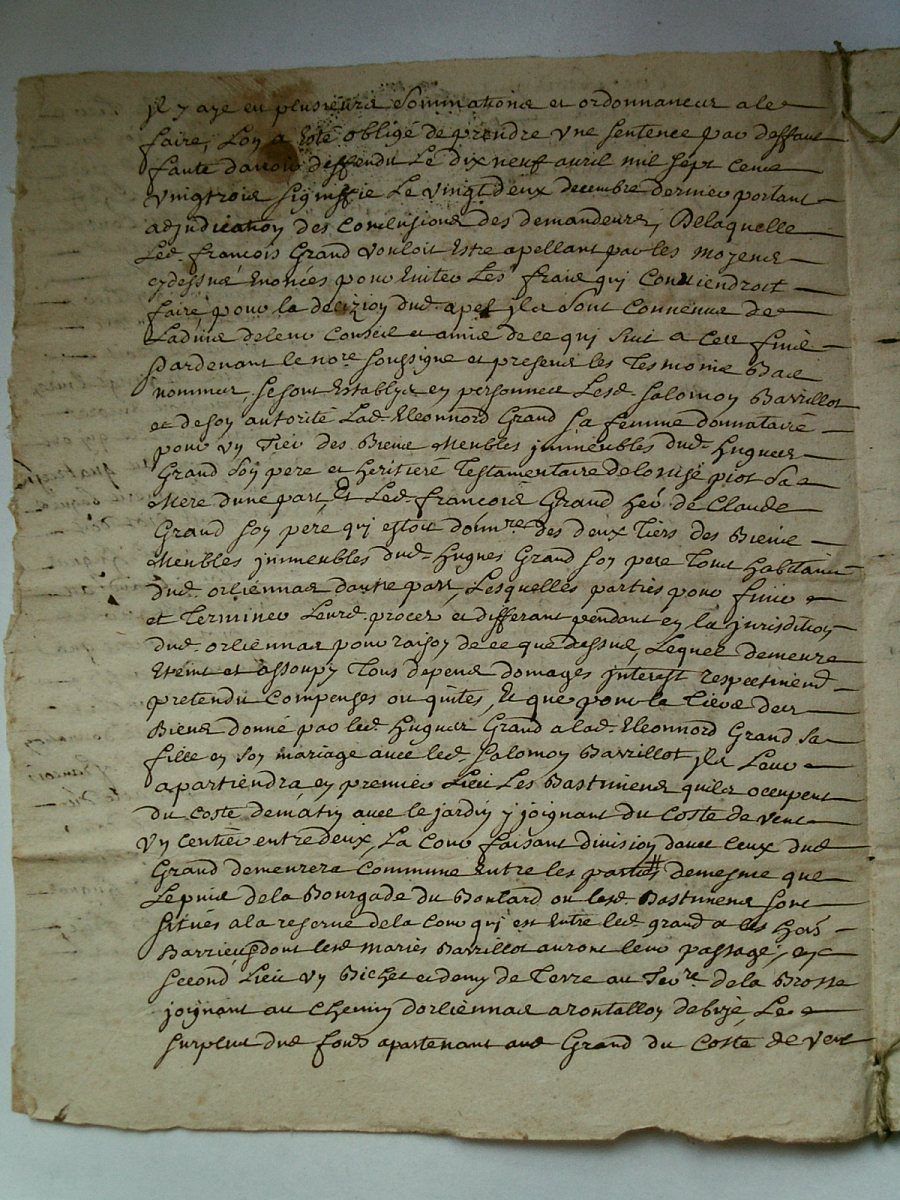 Il y aye eu plusieurs sommations et ordonnances a le
faire, Lon a Esté obligé de prendre une sentence par deffaut
faute davoir deffendu Le dix neuf avril mil sept cens
vingtrois signiffie Le vingt deux decembre dernier portant
adjudication des Conclusions des demandeurs, De laquelle
Led. françois Grand vouloit Estre apellant par les moyens
cydessus Enoncés pour Eviter Les frais quj Conviendroit
faire pour la decizion dud. apel jls sont Convenus de
Ladvis de leur Conseil et amis de ce quj suit a Cett fins
Pardevant le nore. soussigne et presens les Tesmoins Bas
nommes, se sont Establys en personnes Lesd. Salomon Barrillot
et de son autorité Lad. Eleonnord Grand sa femme donnataire
pour un Tier des Biens Meubles immeubles dud. hugues
Grand son pere et heritiere Testamentaire de piot sa
Mere dune part, Et Led. françois Grand her. de Claude
Grand son pere quj estoit donnre. des deux Tiers des Biens
Meubles immeubles dud. hugues Grand son pere Tous habitans
dud. orliennas dautre part, Lesquelles parties pour finir
et Terminer Leurd. proces et differant pendant en la jurisdition
dud. orliennas pour raison de ce que dessus, Lequel demeure
Eteint et assoupy Tous depens domages interest respectivemt.
pretendu Compenses ou quites, Et que pour le Tiers des
Biens donné par led. hugues Grand a lad. Eleonnord Grand sa
fille en son mariage avec led. Salomon Barrillot jls Leur
apartiendra en premier Lieu Les Bastimens quils occupent
du Coste de matin avec le jardin y joignant du Coste de vent
un sentier entre deux, La Cour faisant division davec Ceux dud.
Grand demeurera Commune Entre les parties de mesme que
Le puis de la Bourgade du Boulard ou lesd. Bastimens sont
situés a la reserve de la Cour quj est Entre led. grand a les hors
Barrieres dont lesd. mariés Barrillot auront leur passage, en
second Lieu un Bichet et demy de Terre au Terre. de la Brosse
joignant au Chemin dorliennas a rontallon de bize, Le
surplus dud. fonds apartenant aud. Grand du Coste de vent